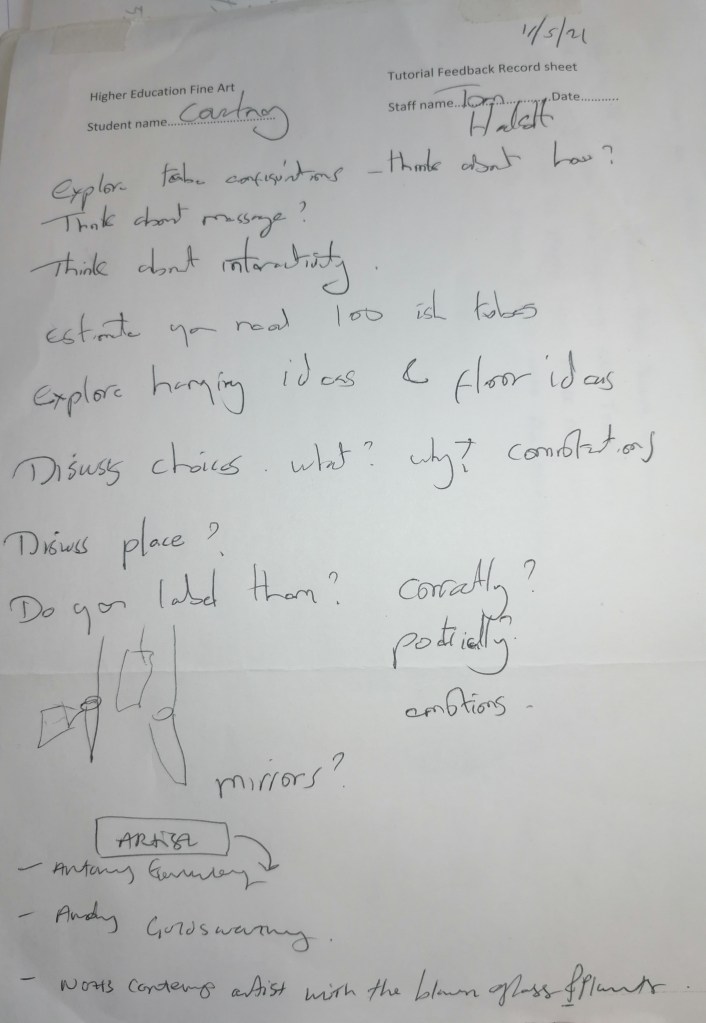 11/5/21
Higher Education Fine Art
Tutorial Feedback Record sheet
Student name.......... Courtney
Staff name.. Tom ......... Date...........
Explore tube configurations - think about how?
Think about message?
Think about interactivity.
estimate you need 100 ish tubes
Explore hanging ideas & floor ideas
Discuss choices. what? why? connotations
Discuss place?
Do you label them? correctly?
poetically?
emotions -
mirrors?
ARtist
- Antony Gormley
- Andy Goldsworthy.
- Notts contemp artist with the blown glass & Plants.